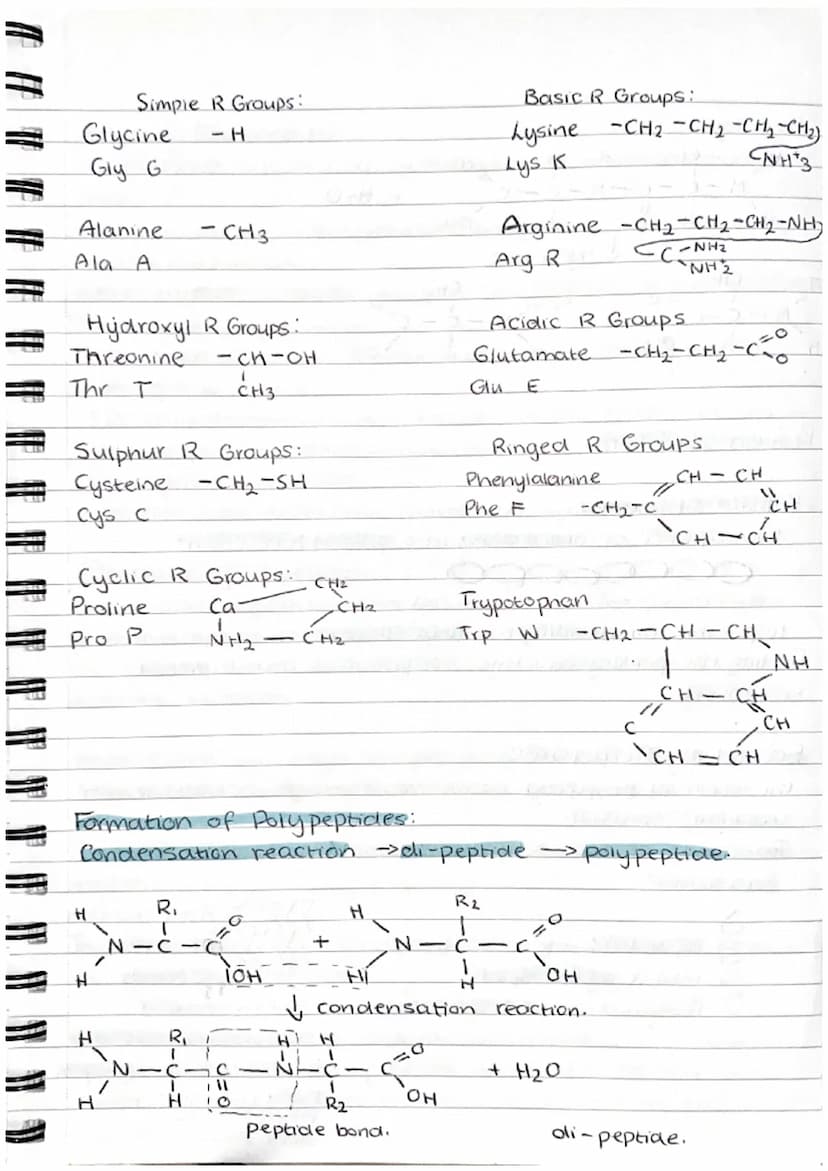 Simple R Groups:
Glycine -H
Gly G
Alanine - CH3
Ala A
Hydroxyl R Groups:
Threonine -CH-OH
CH3
Thr T
Sulphur R Groups:
Cysteine -CH2-SH
Cys C
Cyclic R Groups:
Proline Ca CH2 CH2
Pro P NH2 - CH2
Basic R Groups:
Lysine -CH2-CH2-CH2-CH2
Lys K NH+3
Arginine -CH2-CH2-CH2-NH
Arg R C-NH2
NH+2
Acidic R Groups
Glutamate -CH2-CH2-C=O
O
Glu E
Ringed R Groups
Phenylalanine CH - CH
Phe F -CH2-C CH
CH - CH
Trypotophan
Trp W -CH2-CH-CH
NH
CH - CH
C CH
CH = CH
Formation of Polypeptides:
Condensation reaction → di-peptide → polypeptide.
H R1 O H R2 O
N-C-C + N-C-C
H OH H H OH
↓ condensation reaction.
H R1 H H O
N-C-C-N-C-C + H2O
H H O R2 OH
peptide bond.
di-peptide.